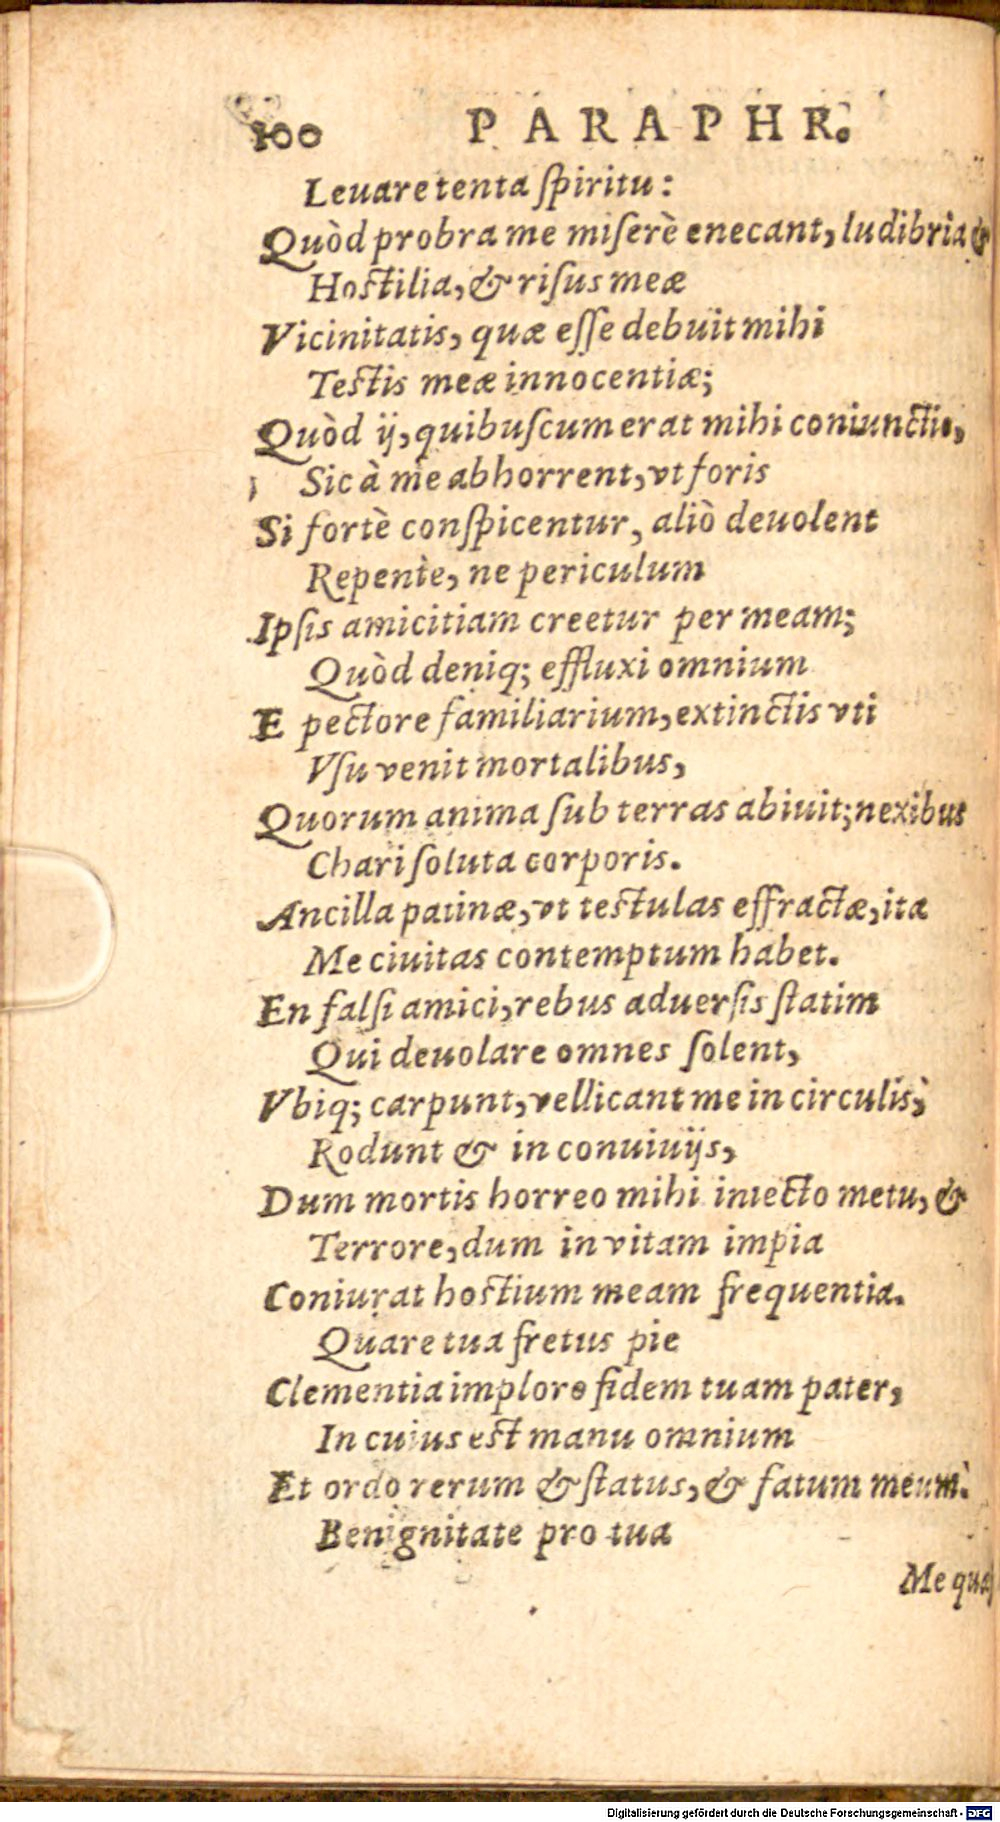 100 PARAPHR.
Leuare tenta ſpiritu:
Quòd probra me miſerè enecant, ludibria &
Hoſtilia, & riſus meæ
Vicinitatis, quæ eſſe debuit mihi
Teſtis meæ innocentiæ;
Quòd ij, quibuſcum erat mihi coniunctio,
Sic à me abhorrent, vt foris
Si fortè conſpicentur, aliò deuolent
Repente, ne periculum
Ipſis amicitiam creetur per meam;
Quòd deniq; effluxi omnium
E pectore familiarium, extinctis vti
Vſu venit mortalibus,
Quorum anima ſub terras abiuit; nexibus
Chari ſoluta corporis.
Ancilla patinæ, vt teſtulas effractæ, ita
Me ciuitas contemptum habet.
En falſi amici, rebus aduerſis ſtatim
Qui deuolare omnes ſolent,
Vbiq; carpunt, vellicant me in circulis,
Rodunt & in conuiuijs,
Dum mortis horreo mihi iniecto metu, &
Terrore, dum in vitam impia
Coniurat hoſtium meam frequentia.
Quare tua fretus pie
Clementia imploro fidem tuam pater,
In cuius eſt manu omnium
Et ordo rerum & ſtatus, & fatum meum.
Benignitate pro tua
Me
Digitalisierung gefördert durch die Deutsche Forschungsgemeinschaft - DFG